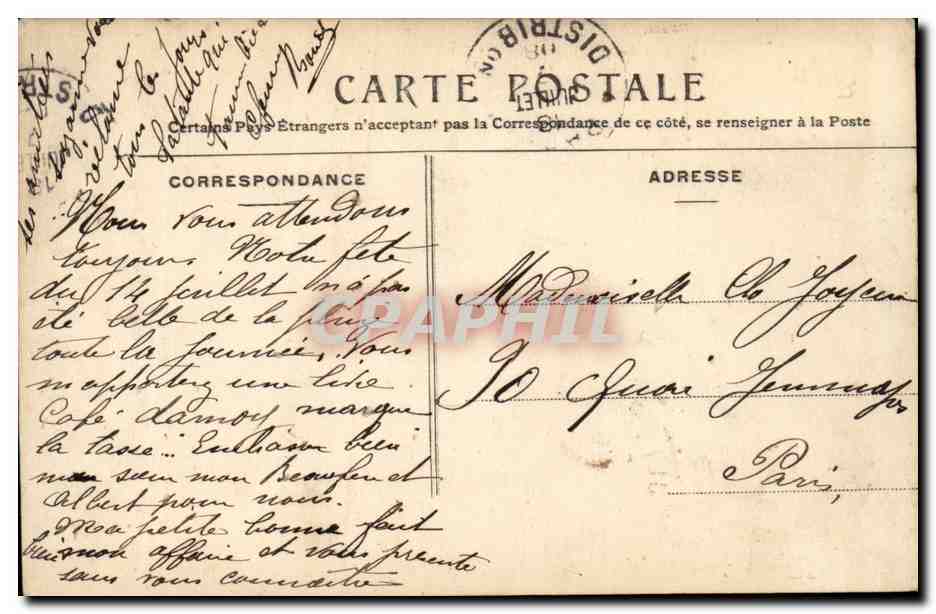 CARTE POSTALE
Certains Pays Étrangers n'acceptant pas la Correspondance de ce côté, se renseigner à la Poste
DISTRIBON
JUILLET
CORRESPONDANCE
Nous vous attendons
toujours Notre fête
du 14 juillet n'a pas
été belle de la pluie
toute la journée, Vous
m'apporterez une livre
Café damoy marque
la tasse. Embrasser bien
mon sœur mon Beaufrere et
Albert pour nous.
Ma petite bonne fait
bien mon affaire et vous presente
sans vous connaitre
ses amitiés
Suzanne vous
reclame
tous les jours
la tante qui
t'aime bien
ADRESSE
Mademoiselle
90 Quai Jemmapes
Paris,
CPAPHIL